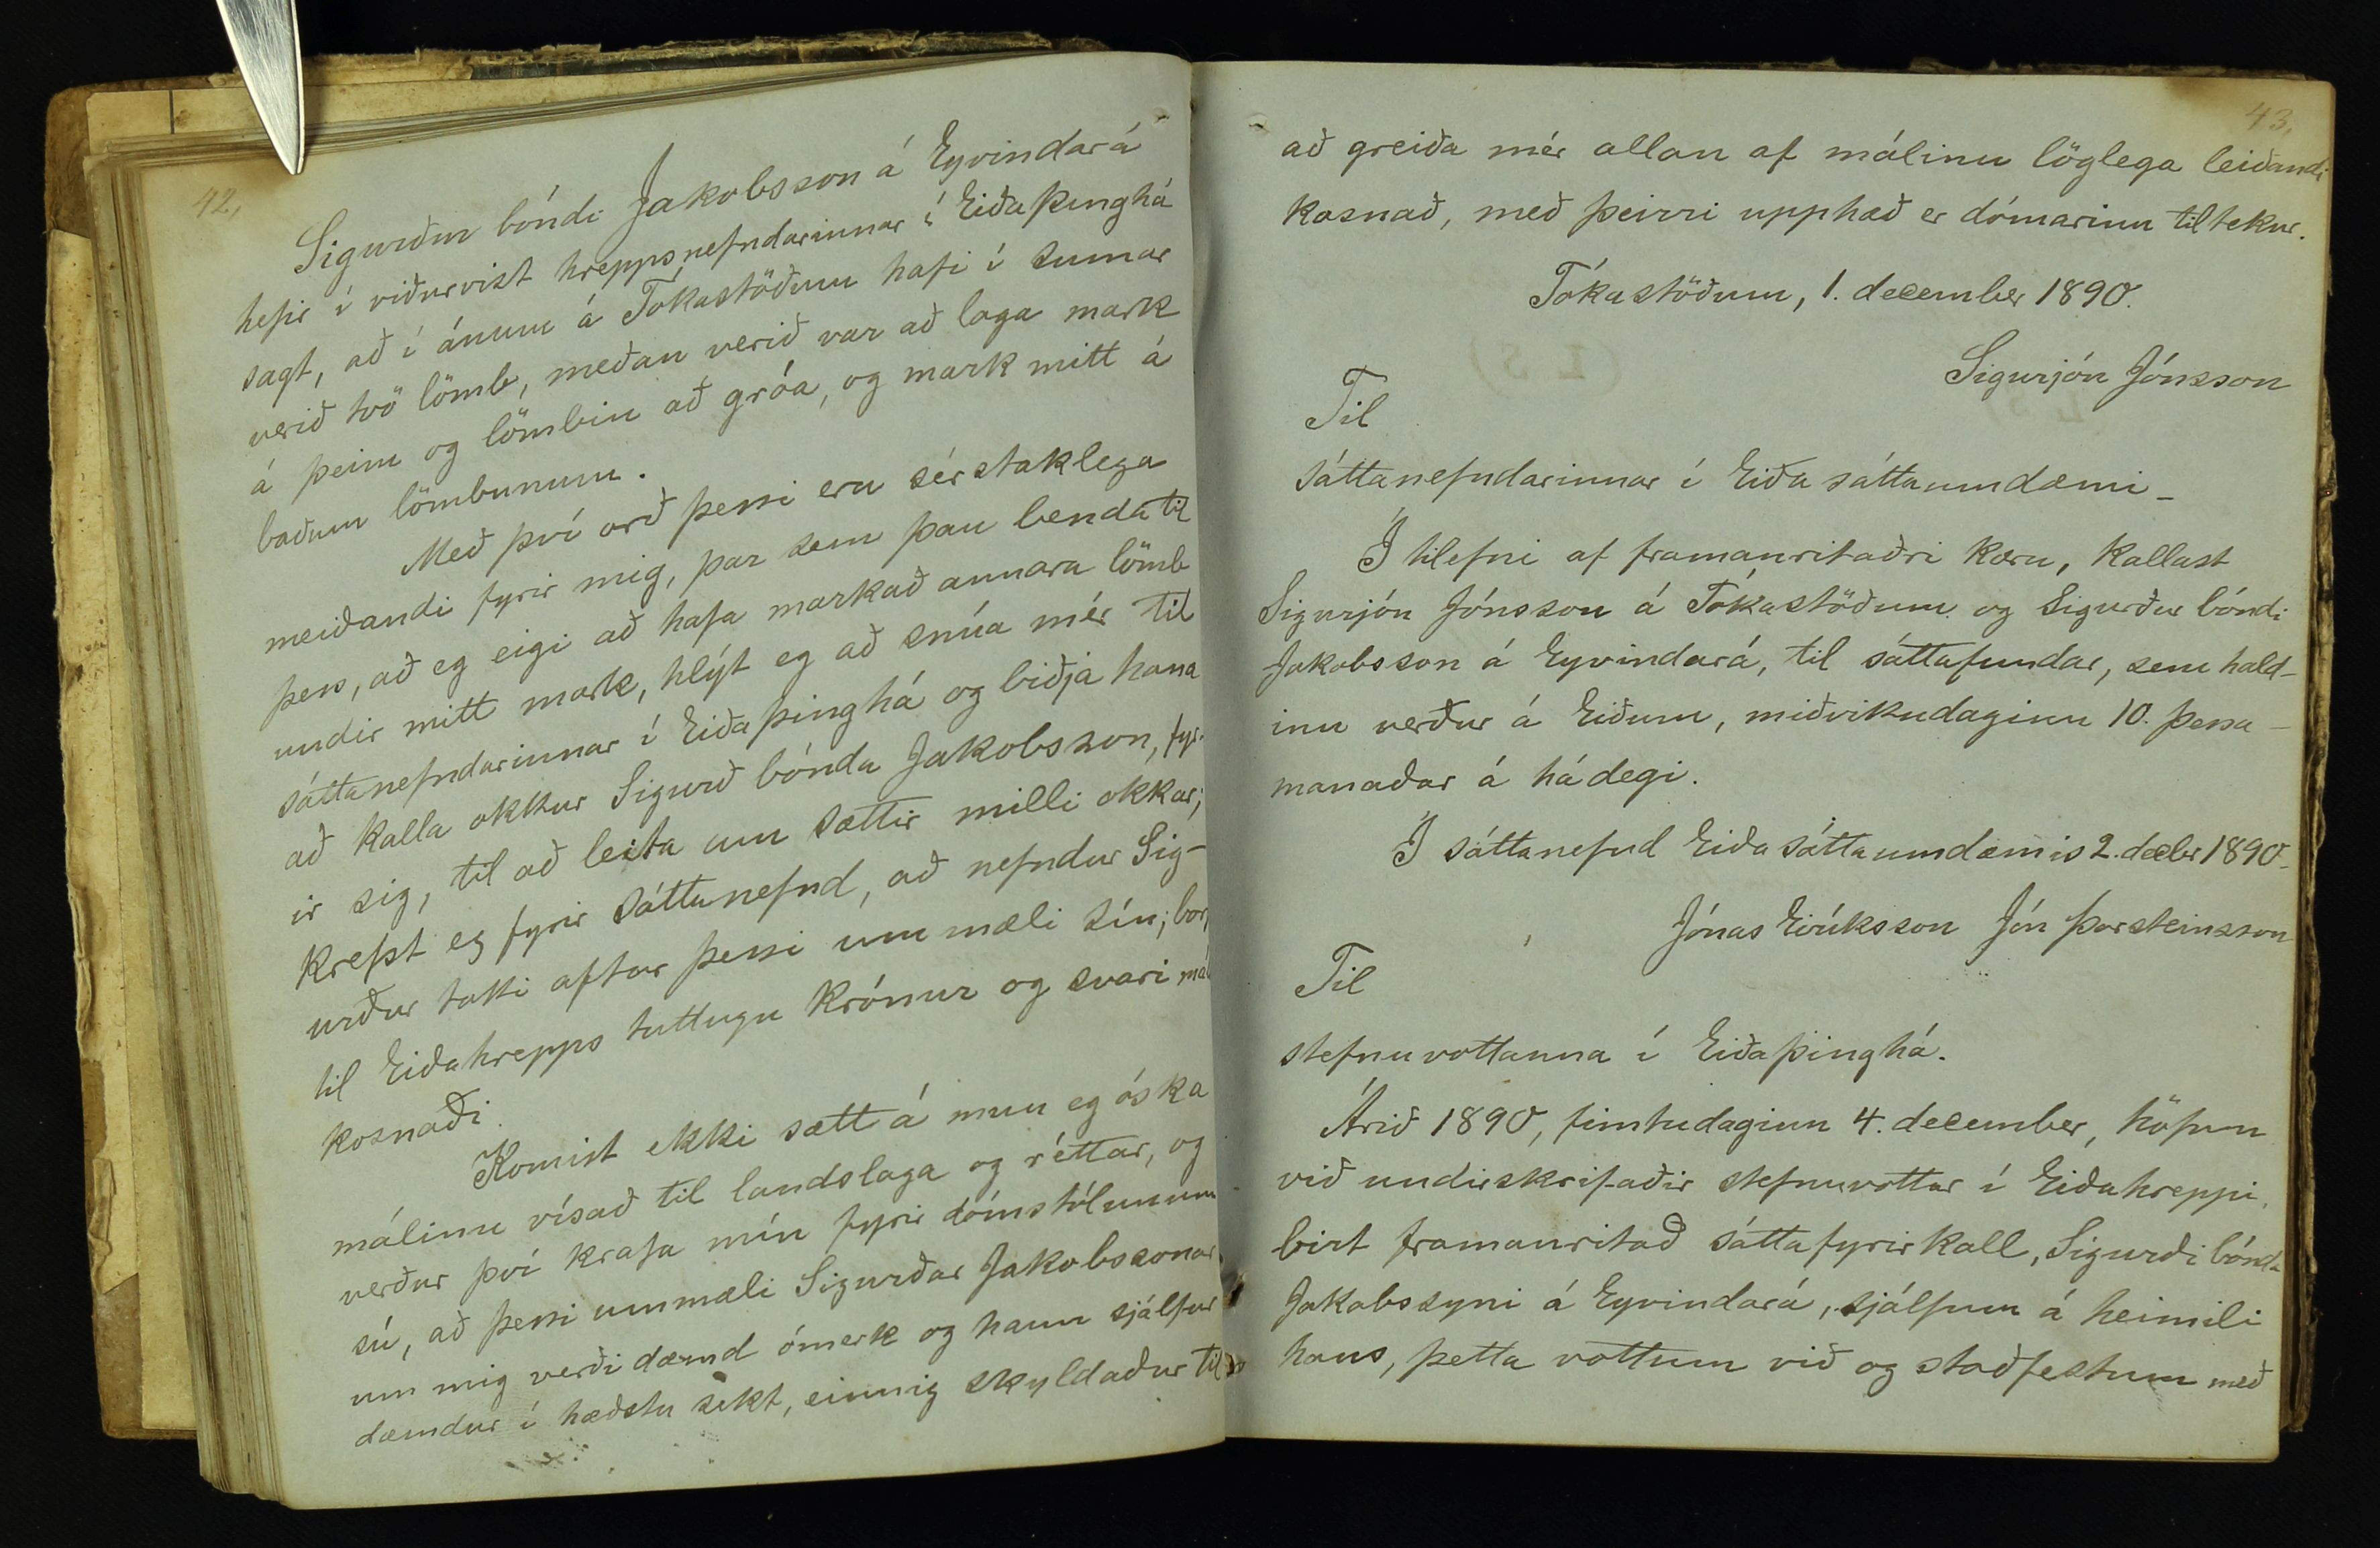 42,
Sigurður bóndi Jakobsson á Eyvindará
hefir í viðurvist hreppsnefndarinnar í Eiðaþinghá
sagt, að í ánum á Tókastöðum hafi í sumar
verið tvö lömb, meðan verið var að laga mark
á þeim og lömbin að gróa, og mark mitt á
baðum lömbunum.
Með því orð þessi eru sérstaklega
meiðandi fyrir mig, þar sem þau benda til
þess, að eg eigi að hafa markað annara lömb
undir mitt mark, hlýt eg að snúa mér til
sáttanefndarinnar í Eiðaþinghá og biðja hana
að kalla okkur Sigurð bónda Jakobsson, fyr-
ir sig, til að leita um sættir milli okkar;
krefst eg fyrir sáttanefnd, að nefndur Sig-
urður takki aftur þessi um mæli sín; bor
til Eiðahrepps tuttugu krónur og svari mál
kosnaði.
Komist ekki sætt á mun eg óska
málinu vísað til landslaga og réttar, og
verður því krafa mín fyrir dómstólunum
sú, að þessi ummæli Sigurðar Jakobssonar
um mig verði dæmd ómerk og hann sjálfur
dæmdur í hæðstu sekt, einnig skyldaður til
43,
að greiða mér allan af málinu löglega leiðandi
kosnað, með þeirri upphæð er dómarinn tiltekur.
Tókastöðum, 1. december 1890.
Sigurjón Jónsson
Til
sáttanefndarinnar í Eiða sáttaumdæmi_
Í tilefni af framanritaðri kæru, kallast
Sigurjón Jónsson á Tókastöðum og Sigurður bóndi
Jakobsson á Eyvindará, til sáttafundar, sem hald-
inn verður á Eiðum, miðvikudaginn 10. þessa-
manaðar á hádegi.
Í sáttanefnd Eiða sáttaumdæmis 2. decbr 1890_
Jónas Eiríksson Jón Þorsteinsson
Til
stefnuvottanna í Eiðaþinghá.
Árið 1890, fimtudaginn 4. december, höfum
við undirskrifaðir stefnuvottar í Eiðahreppi,
birt framanritað sáttafyrirkall, Sigurði bónda
Jakobssyni á Eyvindará, sjálfum á heimili
hans, þetta vottum við og staðfestum með